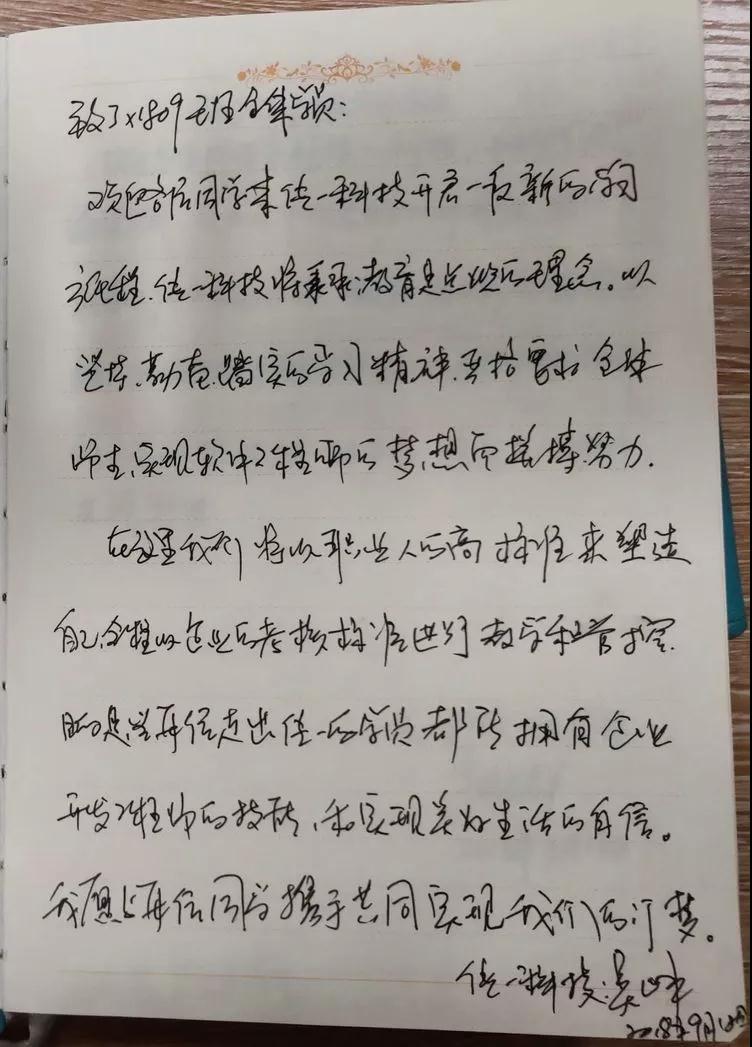 致JX1809班全体学员:
欢迎各位同学来伍一科技开启一段新的学习
旅程.伍一科技将秉承教育是良心的理念。以
坚持、勤奋、踏实的学习精神.严格要求全体
师生,实现软件工程师的梦想而拼搏努力.
在这里我们将以职业人的高标准来塑造
自己,全程以企业的考核标准进行教学和管控.
目的是每位走出伍一的学员都能拥有企业
开发工程师的技能,和实现美好生活的自信。
我愿与每位同学携手共同实现我们的IT梦。
伍一科技:
2018年9月